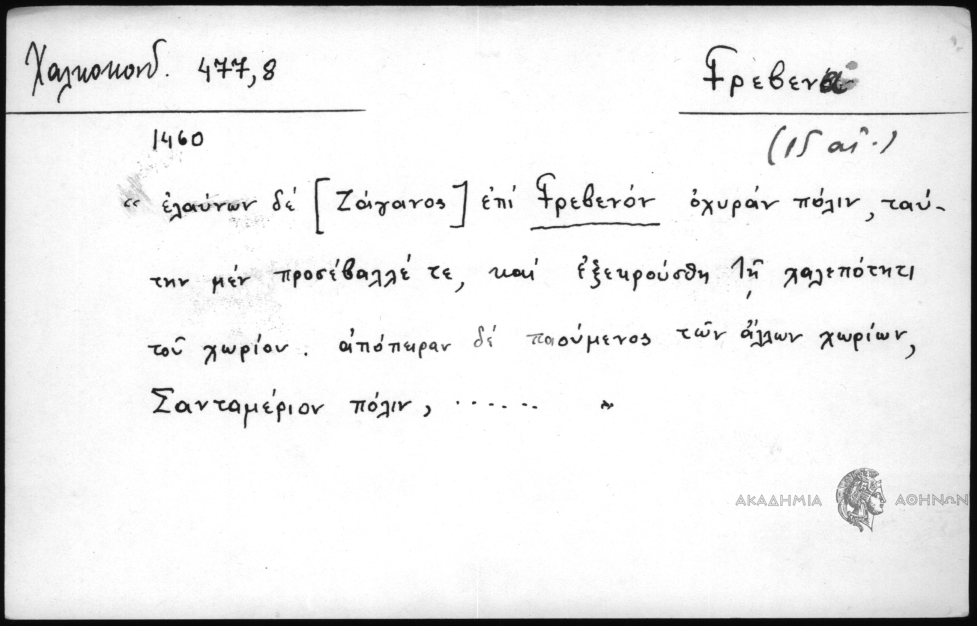 Χαλκοκονδ. 477,8
Γρεβενά
1460
(15 αἰ.)
“ ἐλαύνων δέ [Ζάγανος] ἐπί Γρεβενόν ὀχυράν πόλιν, ταύ-
την μέν προσέβαλλέ τε, καί ἐξεκρούσθη τῇ χαλεπότητι
τοῦ χωρίου. ἀπόπειραν δέ ποούμενος τῶν ἄλλων χωρίων,
Σανταμέριον πόλιν, ...... ”
ΑΚΑΔΗΜΙΑ ΑΘΗΝΩΝ